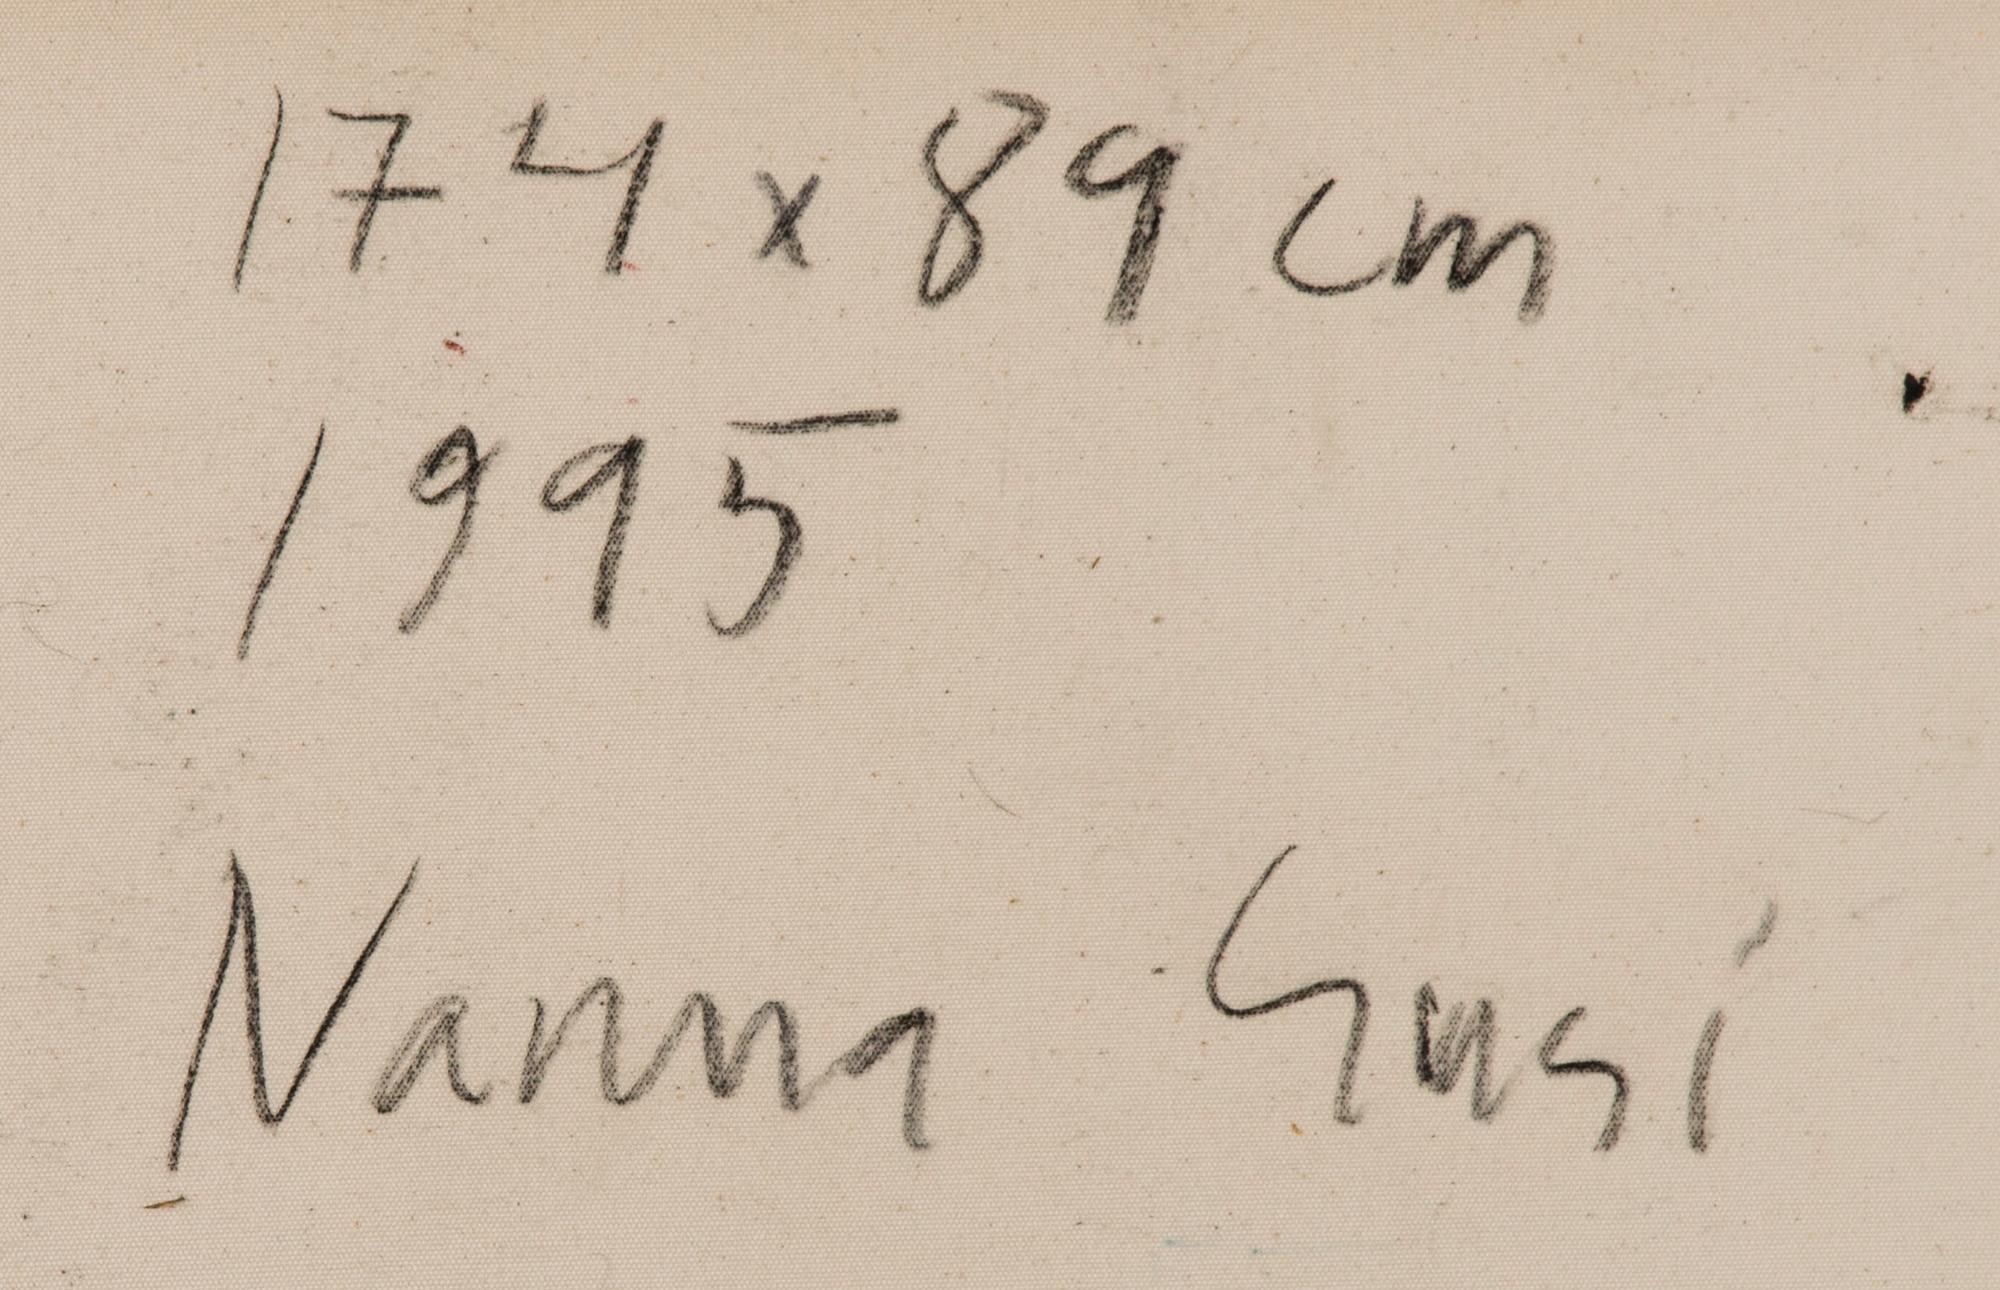 174 x 89 cm
1995
Nanna Susi